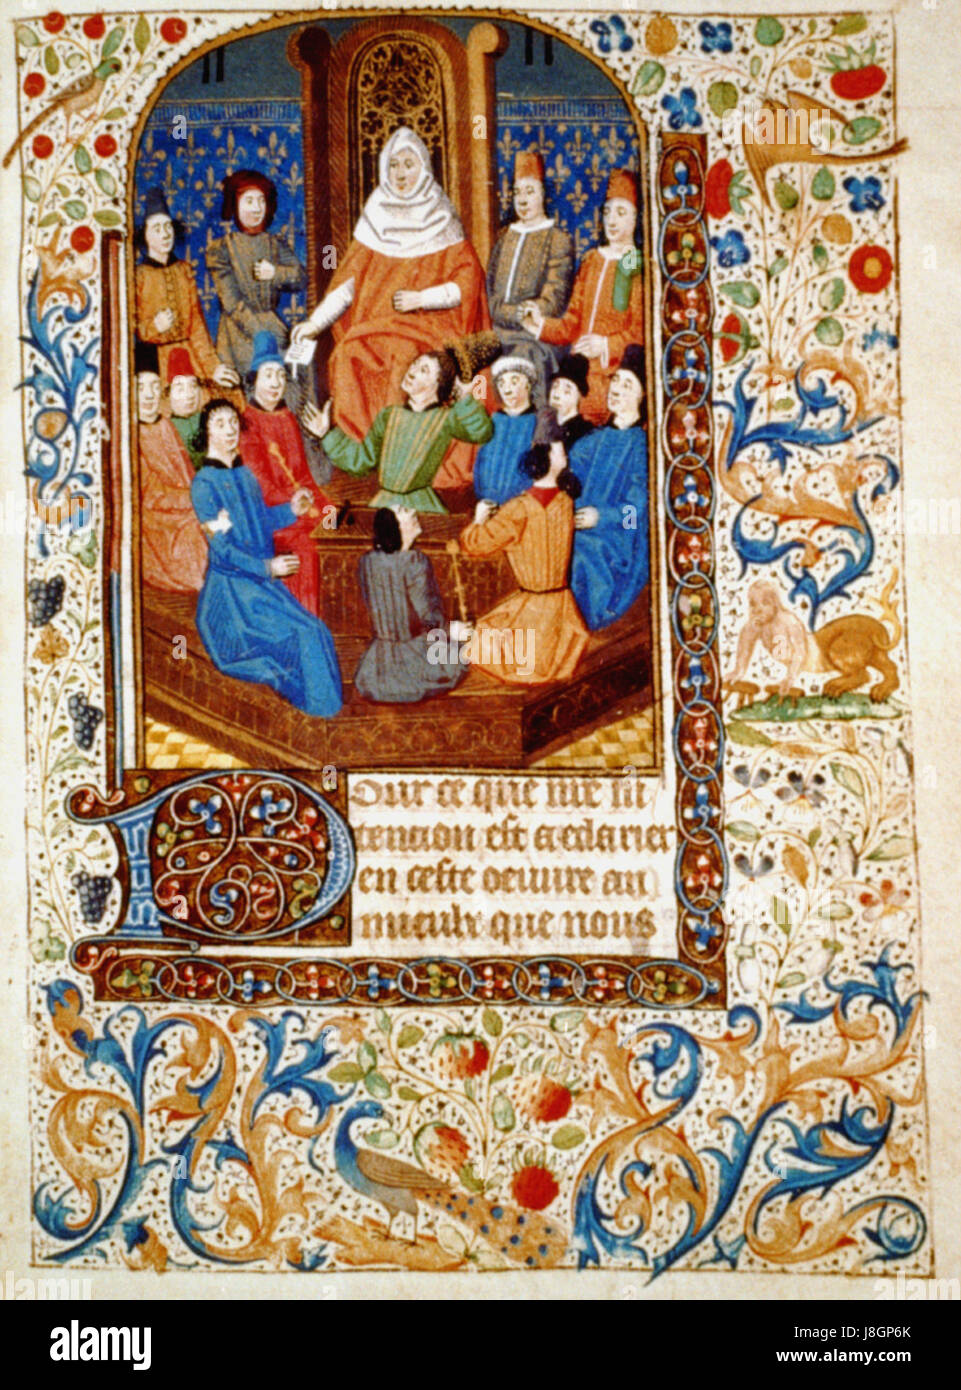 Pour ce que nre in
tencion est declarier
en ceste oeuvre au
mieulx que nous
alamy
Image ID: J8GP6K
www.alamy.com